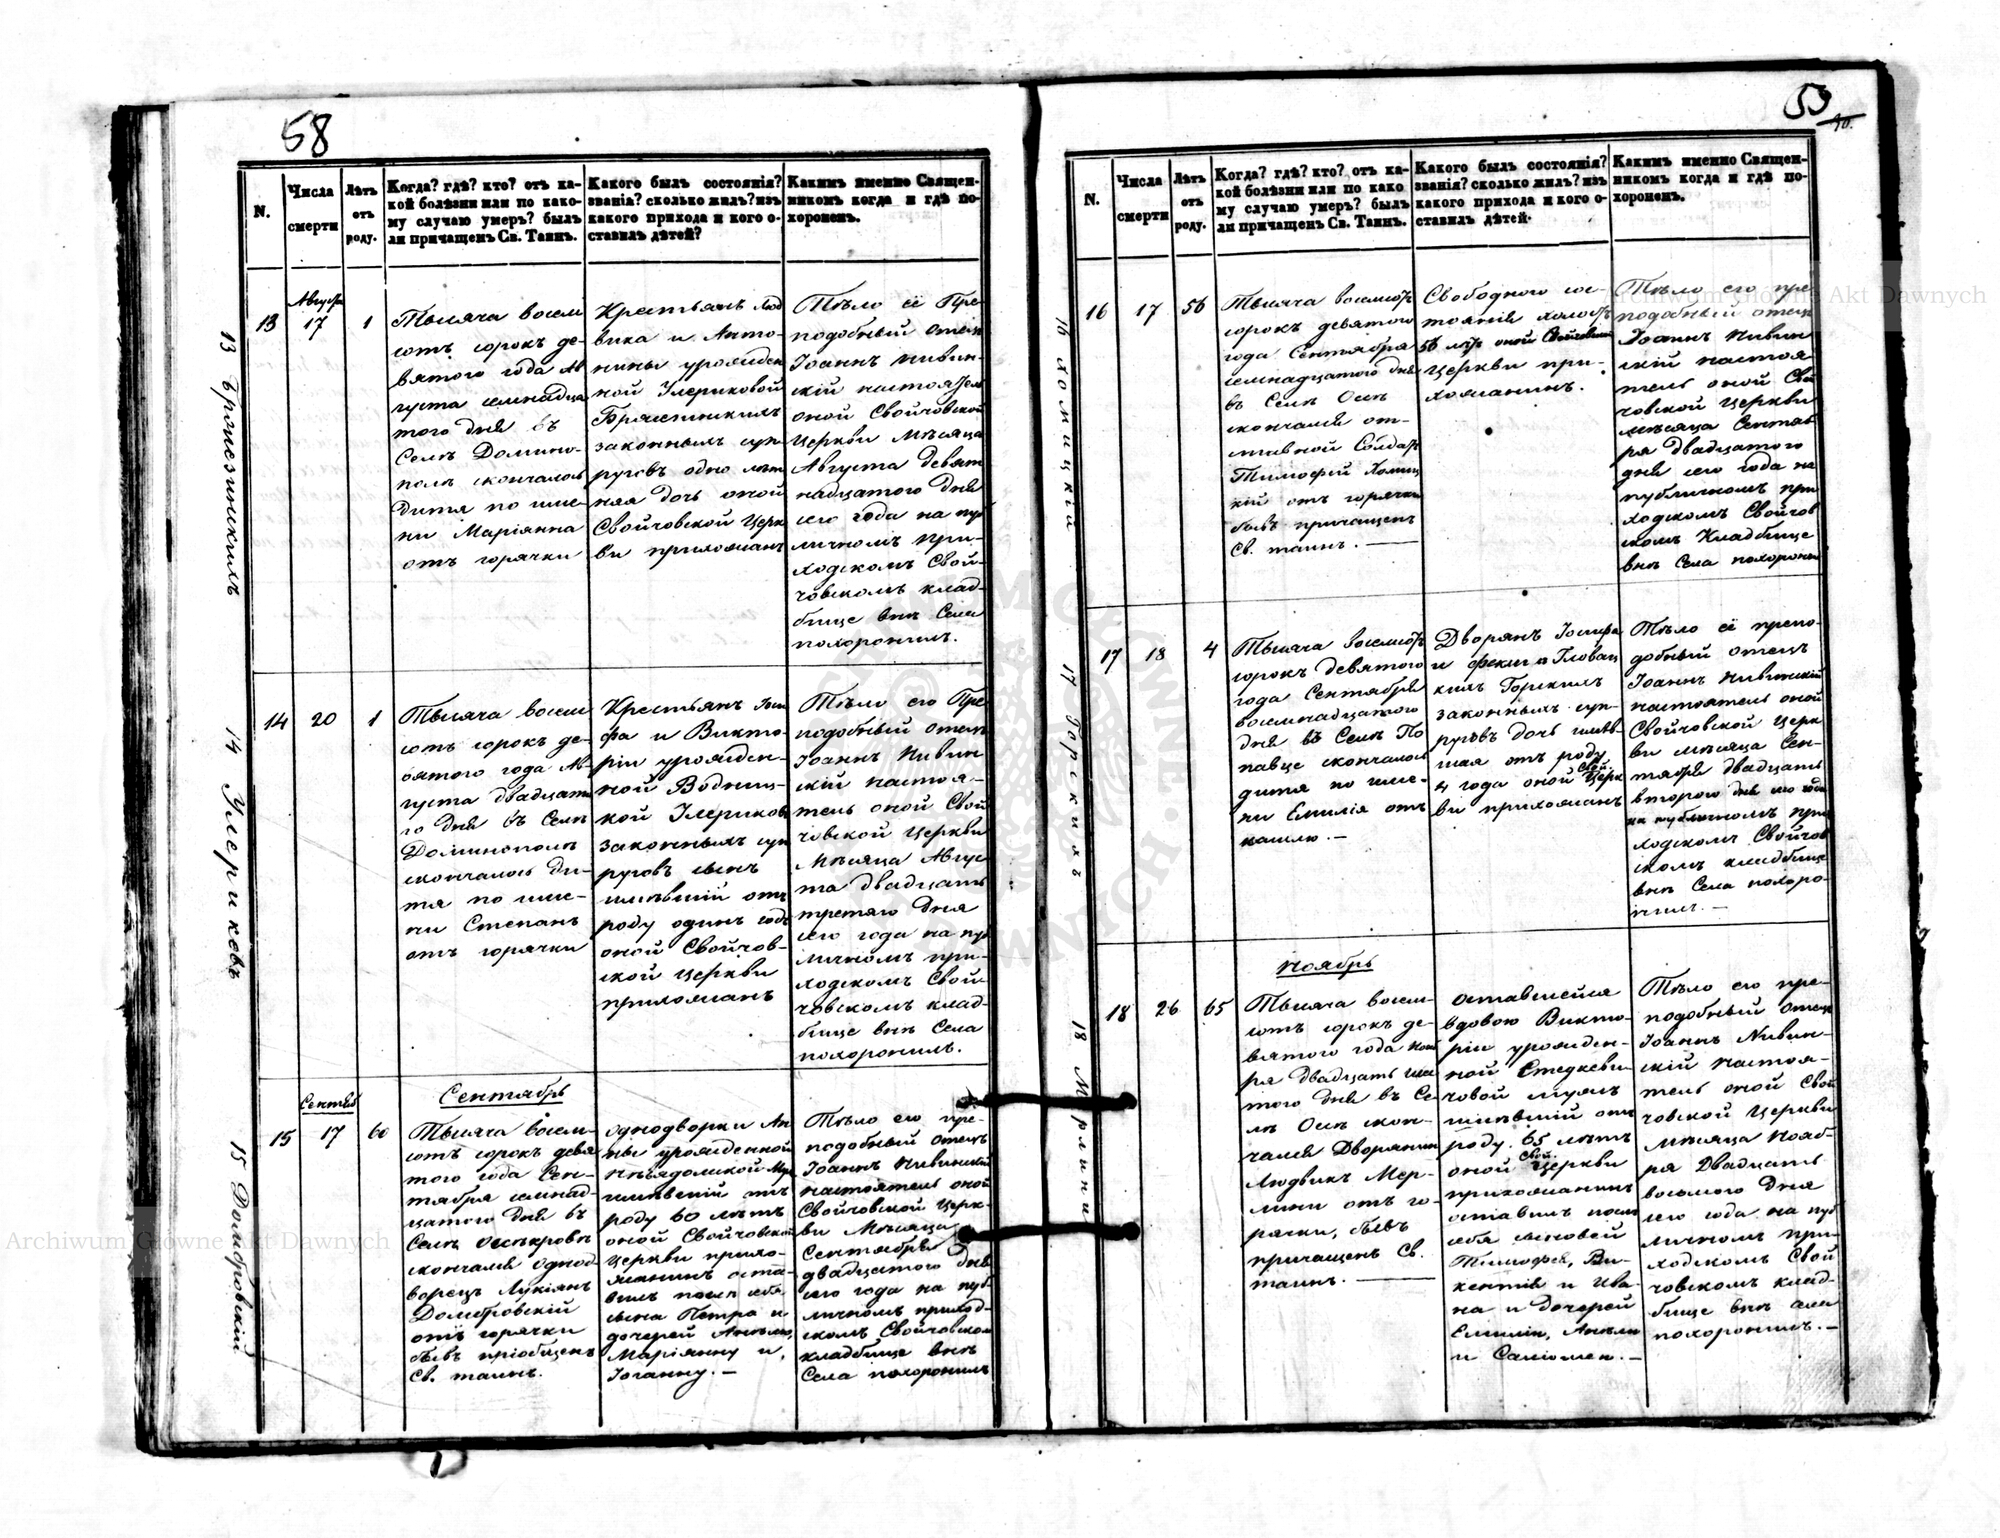 58
N.
Числа
смерти
Лѣтъ
отъ
роду.
Когда? гдѣ? кто? отъ ка-
кой болѣзни или по како-
му случаю умеръ? былъ
ли причащенъ Св. Таинъ.
Какого былъ состоянія?
званія? сколько жилъ? изъ
какого прихода и кого о-
ставилъ дѣтей?
Какимъ именно Священ-
никомъ когда и гдѣ по-
хороненъ.
13
17
1
Тысяча восем
сотъ сорокъ де-
вятого года Ав
густа семнадца
того дня въ
Селѣ Домино-
полѣ скончалось
дитя по име-
ни Маріянна
отъ горячки
Крестьянъ Люд
вика и Анто-
нины урожден
ной Улериковой
законныхъ суп-
руговъ одно лѣт
няя дочь оной
Свойчовской Церк
ви прихожанъ
Тѣло её Пре-
подобный отецъ
Іоаннъ Нивин-
скій настоятель
оной Свойчовской
Церкви Мѣсяца
Августа девят
надцатого дня
сего года на пуб
личномъ при-
ходскомъ Свой-
човскомъ клад-
бище внѣ Села
похоронилъ.
14
20
1
Тысяча восем
сотъ сорокъ де-
вятого года Ав-
густа двадцата
го дня въ Селѣ
Доминополѣ
скончалось ди-
тя по име-
ни Степанъ
отъ горячки
Крестьянъ Іоси
фа и Викто-
ріи урожден-
ной Водниц-
кой Улериковъ
законныхъ суп
руговъ сынъ
имѣвшій отъ
роду одинъ годъ
оной Свойчов-
ской Церкви
прихожанъ
Тѣло его Пре
подобный отецъ
Іоаннъ Нивин
скій настоя-
тель оной Свой
човской Церкви
Мѣсяца Авгус
та двадцать
третяго дня
сего года на пуб
личномъ при-
ходскомъ Свой
човскомъ клад-
бище внѣ Села
похоронилъ.
15
17
60
Сентябрь
Тысяча восем-
сотъ сорокъ девя
того года Сен-
тября семнад-
цатого дня въ
скончался однод-
ворецъ Лукіянъ
Домбровскій
отъ горячки
бывъ пріобщенъ
Св. таинъ.
однодворки Ан
ны урожденной
имѣвшій отъ
роду 60 лѣтъ
оной Свойчовской
Церкви прихо-
жанинъ оста-
вилъ послѣ себя
сына Петра и
дочерей
Маріянну и
Іоганну. —
Тѣло его пре-
подобный отецъ
Іоаннъ Нивинскій
настоятель оной
Свойчовской Церк-
ви Мѣсяца
Сентября
двадцатого дня
сего года на пуб-
личномъ приход-
скомъ Свойчовском
кладбище внѣ
Села похоронилъ
14 Улериковъ
15 Домбровскій
59
N.
Числа
смерти
Лѣтъ
отъ
роду.
Когда? гдѣ? кто? отъ ка-
кой болѣзни или по како
му случаю умеръ? былъ
ли причащенъ Св. Таинъ.
Какого былъ состоянія?
званія? сколько жилъ? изъ
какого прихода и кого о-
ставилъ дѣтей.
Какимъ именно Священ-
никомъ когда и гдѣ по-
хороненъ.
16
17
56
Тысяча восемсотъ
сорокъ девятого
года Сентября
семнадцатого дня
въ Селѣ
скончался от-
ставной Солдатъ
Тимофей Хомиц
кій отъ горячки
бывъ причащенъ
Св. таинъ. —
Свободного сос-
тоянія
Церкви при-
хожанинъ.
Тѣло его пре
подобный отецъ
Іоаннъ Нивин
скій настоя
тель оной Свой
човской Церкви
мѣсяца Сентяб
ря двадцатого
дня сего года на
публичномъ при
ходскомъ Свойчов
скомъ Кладбище
внѣ Села похоронилъ
17
18
4
Тысяча восемсотъ
сорокъ девятого
года Сентября
восемнадцатого
дня въ Селѣ По
павце скончалось
дитя по име-
ни Емилія отъ
кашлю. —
Дворянъ Іосифа
и Феклы Гловац
кихъ Горскихъ
законныхъ суп-
руговъ дочь имѣв
шая отъ роду
4 года оной Свой. Церк
ви прихожанъ
Тѣло её препо-
добный отецъ
Іоаннъ Нивинскій
настоятель оной
Свойчовской Церк
ви мѣсяца Сен-
тября двадцать
второго дня сего года
на публичномъ при
ходскомъ Свойчов
скомъ кладбище
внѣ Села похоро-
нилъ. —
18
26
65
Ноябрь
Тысяча восем-
сотъ сорокъ де-
вятого года Нояб
ря двадцать шес
того дня въ Се
лѣ скон-
чался Дворянин
Людвикъ Мер-
лини отъ го-
рячки, бывъ
причащенъ Св.
таинъ. —
оставшейся
вдовою Викто-
ріи урожден-
ной
човой мужъ
имѣвшій отъ
роду 65 лѣтъ
оной Свой. Церкви
прихожанинъ
оставилъ послѣ
себя сыновей
Тимофея, Ви-
кентія и Ива
на и дочерей
Емилію,
и Саломею. —
Тѣло его пре-
подобный отецъ
Іоаннъ Нивин-
скій настоя-
тель оной Свой
човской Церкви
мѣсяца Нояб-
ря двадцать
восьмого дня
сего года на пуб
личномъ при-
ходскомъ Свой
човскомъ клад-
бище внѣ села
похоронилъ. —
16 Хомицкій
17 Горскихъ
18 Мерлини
Archiwum Główne Akt Dawnych
Archiwum Główne Akt Dawnych